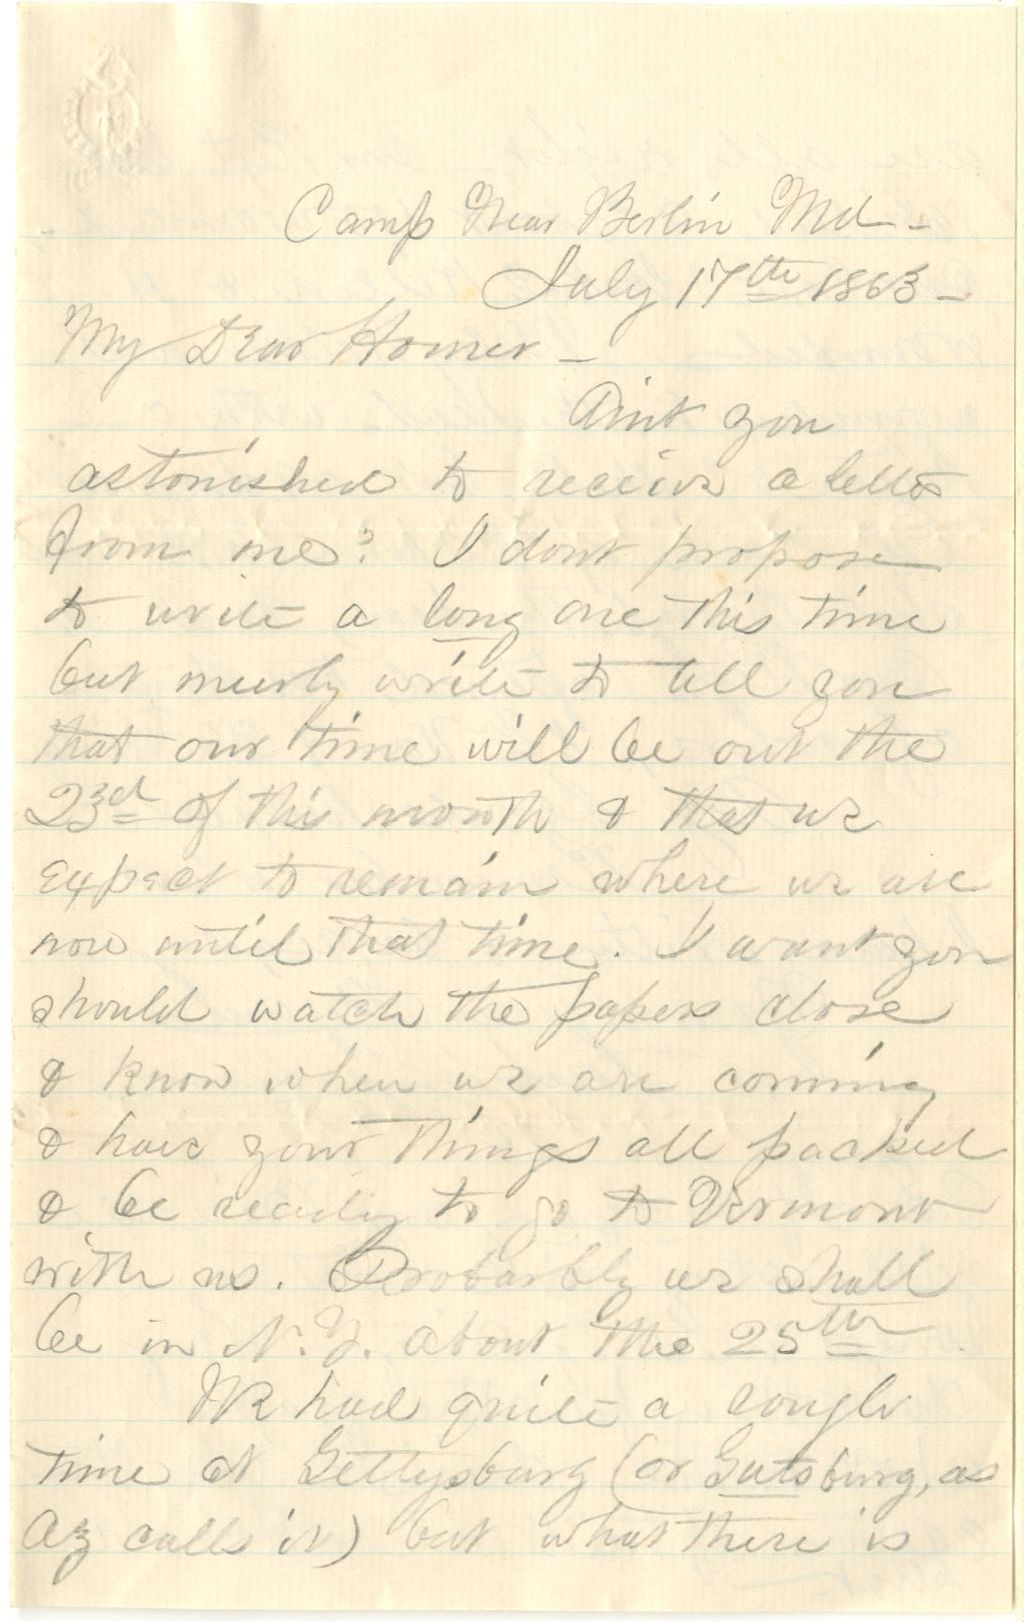 Camp Near Berlin Md -
July 17th 1863 -
My Dear Homer -
Aint you
astonished to receive a letter
from me? I dont propose
to write a long one this time
but meerly write to tell you
that our time will be out the
23d of this month & that we
expect to remain where we are
now until that time. I want you
should watch the papers close
& know when we are coming
& have your things all packed
& be ready to go to Vermont
with us. Probarbly we shall
be in N.Y. about the 25th
We had quite a rough
time at Gettysburg (or Gutsburg, as
Az calls it) but what there is